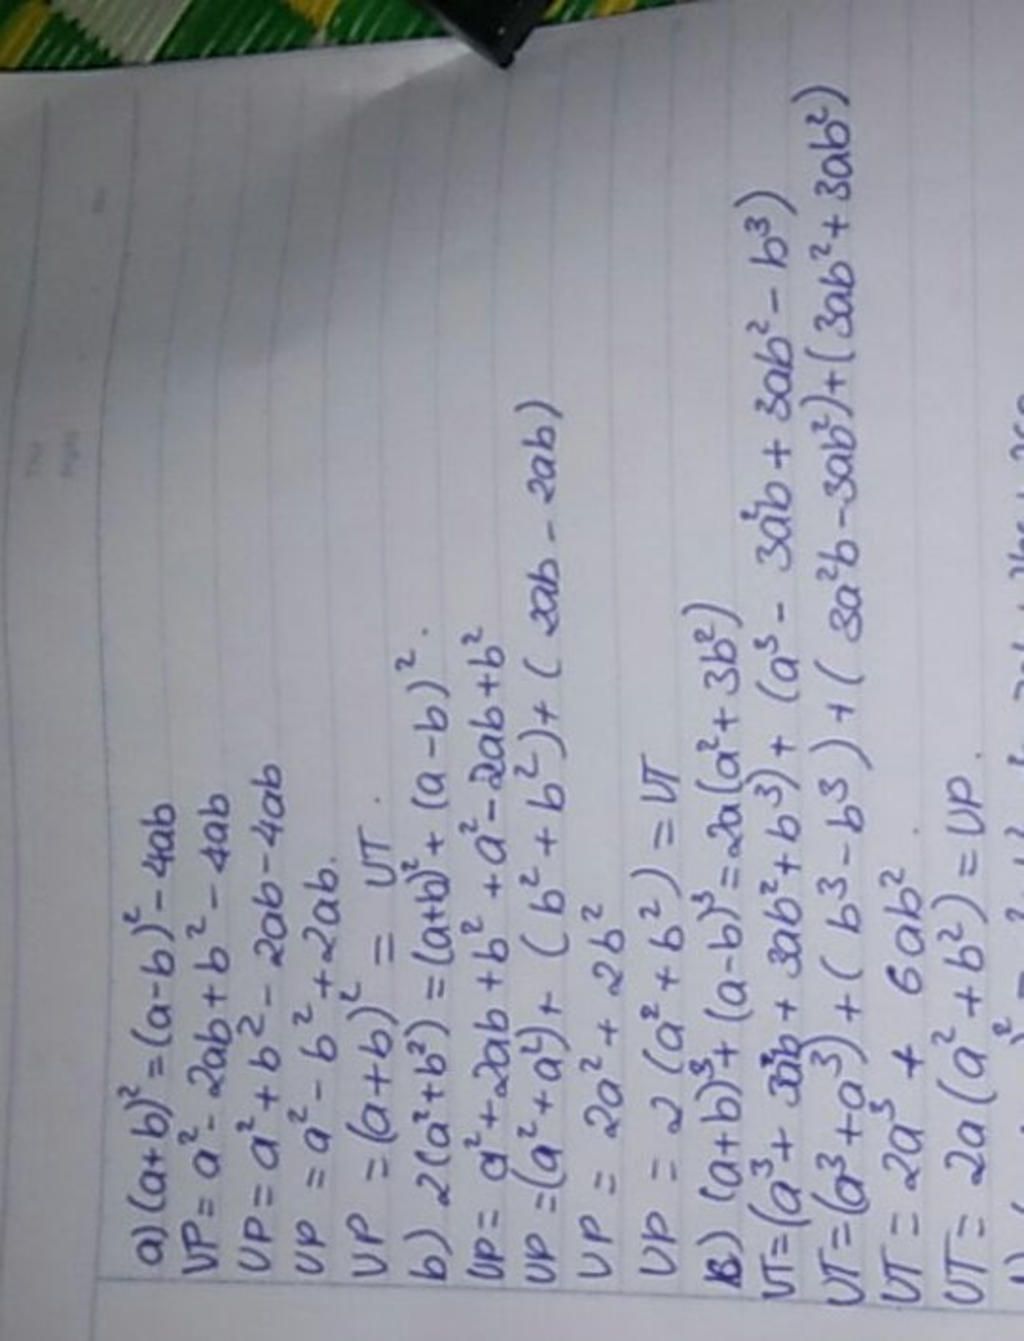 a) (a+b)² = (a-b)² - 4ab
VP = a² - 2ab + b² - 4ab
VP = a² + b² - 2ab - 4ab
VP = a² - b² + 2ab.
VP = (a+b)² = VT.
b) 2(a²+b²) = (a+b)² + (a-b)².
VP = a² + 2ab + b² + a² - 2ab + b²
VP = (a² + a²) + (b² + b²) + (2ab - 2ab)
VP = 2a² + 2b²
VP = 2(a² + b²) = VT
B) (a+b)³ + (a-b)³ = 2a(a² + 3b²)
VT = (a³ + 3a²b + 3ab² + b³) + (a³ - 3a²b + 3ab² - b³)
VT = (a³ + a³) + (b³ - b³) + (3a²b - 3ab²) + (3ab² + 3ab²)
VT = 2a³ + 6ab².
VT = 2a(a² + b²) = VP.